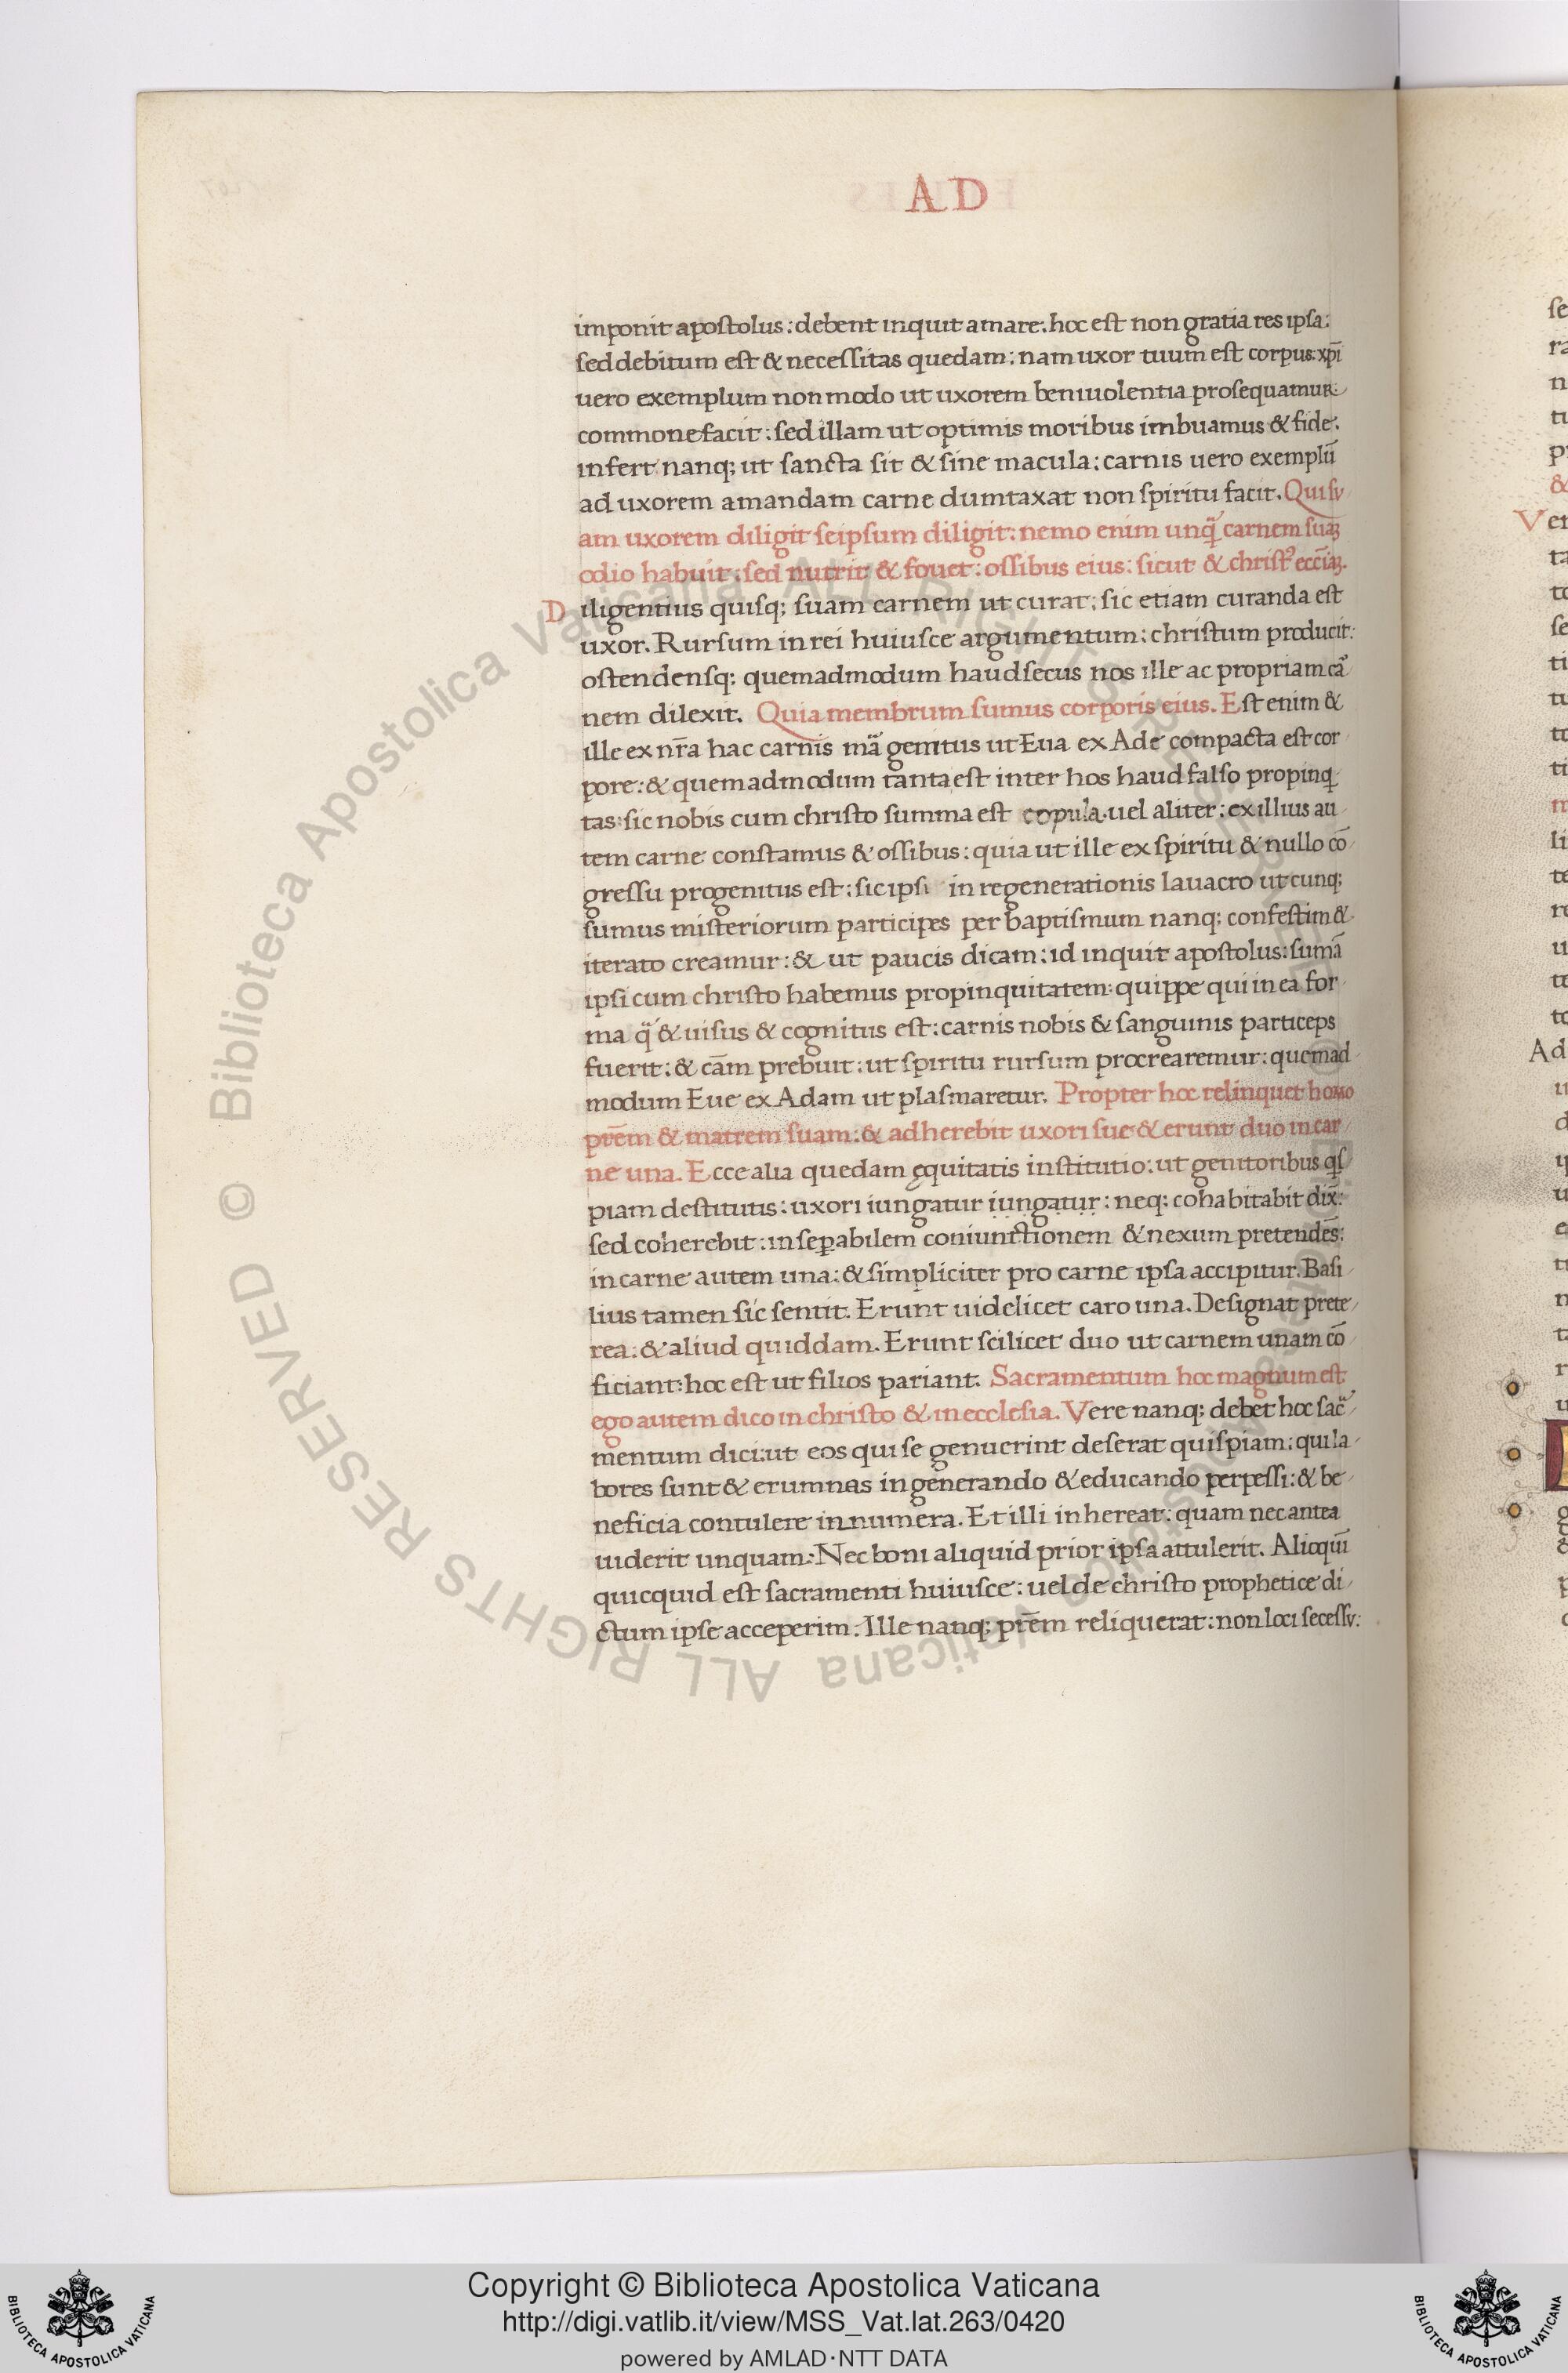 AD
imponit apostolus: debent inquit amare. hoc est non gratia res ipsa:
sed debitum est & necessitas quedam: nam uxor tuum est corpus: xp̄i
uero exemplum non modo ut uxorem beniuolentia prosequamur:
commonefacit: sed illam ut optimis moribus imbuamus & fide.
infert nanq; ut sancta sit & sine macula: carnis uero exemplū
ad uxorem amandam carne dumtaxat non spiritu facit. Qui su
am uxorem diligit seipsum diligit: nemo enim unq̃ carnem suaꝫ
odio habuit: sed nutrit & fouet: ossibus eius: sicut & christꝰ ecc̄iaꝫ.
Diligentius quisq; suam carnem ut curat: sic etiam curanda est
uxor. Rursum in rei huiusce argumentum: christum producit:
ostendensq; quemadmodum haud secus nos ille ac propriam cã
nem dilexit. Quia membrum sumus corporis eius. Est enim &
ille ex nr̄a hac carnis mã genitus ut Eua ex Ade compacta est cor
pore: & quemadmodum tanta est inter hos haud falso propinq
tas: sic nobis cum christo summa est copula. uel aliter: ex illius au
tem carne constamus & ossibus: quia ut ille ex spiritu & nullo cō
gressu progenitus est: sic ipsi in regenerationis lauacro utcunq;
sumus misteriorum participes per baptismum nanq; confestim &
iterato creamur: & ut paucis dicam: id inquit apostolus: sumā
ipsi cum christo habemus propinquitatem: quippe qui in ea for
ma q̃ & uisus & cognitus est: carnis nobis & sanguinis particeps
fuerit: & cām prebuit: ut spiritu rursum procrearemur: quemad
modum Eue ex Adam ut plasmaretur. Propter hoc relinquet homo
prēm & matrem suam: & adherebit uxori sue & erunt duo in car
ne una. Ecce alia quedam ęquitatis institutio: ut genitoribus qs
piam destitutis: uxori iungatur iungatur: neq; cohabitabit dix̄:
sed coherebit: inseꝑabilem coniunctionem & nexum pretendēs:
in carne autem una: & simpliciter pro carne ipsa accipitur. Basi
lius tamen sic sentit. Erunt uidelicet caro una. Designat prete
rea: & aliud quiddam. Erunt scilicet duo ut carnem unam cō
ficiant: hoc est ut filios pariant. Sacramentum hoc magnum est
ego autem dico in christo & in ecclesia. Vere nanq; debet hoc sac̃
mentum dici: ut eos qui se genuerint deserat quispiam: qui la
bores sunt & erumnas in generando & educando perpessi: & be
neficia contulere innumera. Et illi inhereat: quam nec antea
uiderit unquam: Nec boni aliquid prior ipsa attulerit. Alioquī
quicquid est sacramenti huiusce: uel de christo prophetice di
ctum ipse acceperim. Ille nanq; prēm reliquerat: non loci secessu:
© Biblioteca Apostolica Vaticana ALL RIGHTS RESERVED
Copyright © Biblioteca Apostolica Vaticana
http://digi.vatlib.it/view/MSS_Vat.lat.263/0420
powered by AMLAD·NTT DATA
BIBLIOTECA APOSTOLICA VATICANA
BIBLIOTECA APOSTOLICA VATICANA